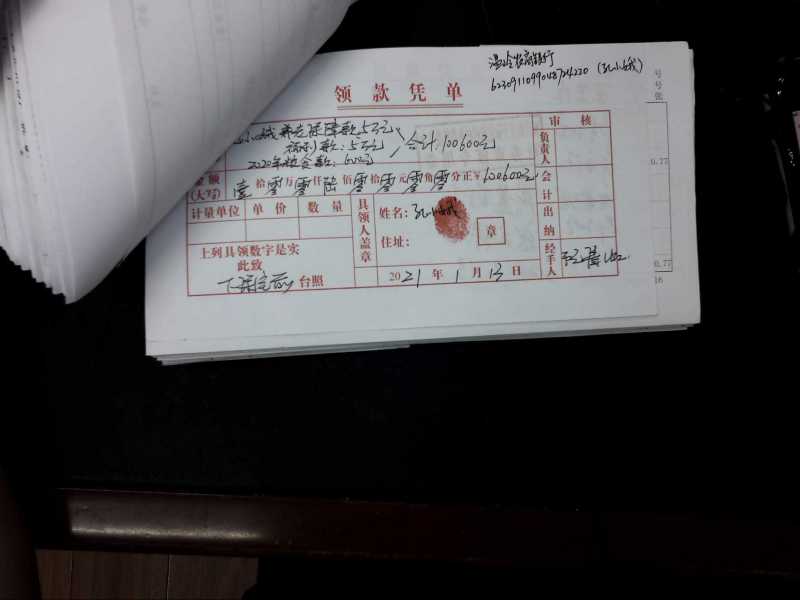 温岭农商银行
6230911099048724220 (孔小娥)
领款凭单
小娥养老保障款:5万元
福利款:5万元
合计:100600元
2020年粮食款:600元
审核
负责人
金额
(大写) 壹拾零万零仟陆佰零拾零元零角零分正¥100600元
会计
计量单位 单价 数量
具领人盖章
姓名:孔小娥
章
住址:
出纳
上列具领数字是实
此致
台照
2021年1月13日
经手人
号
号
张
0.77
0.77
16